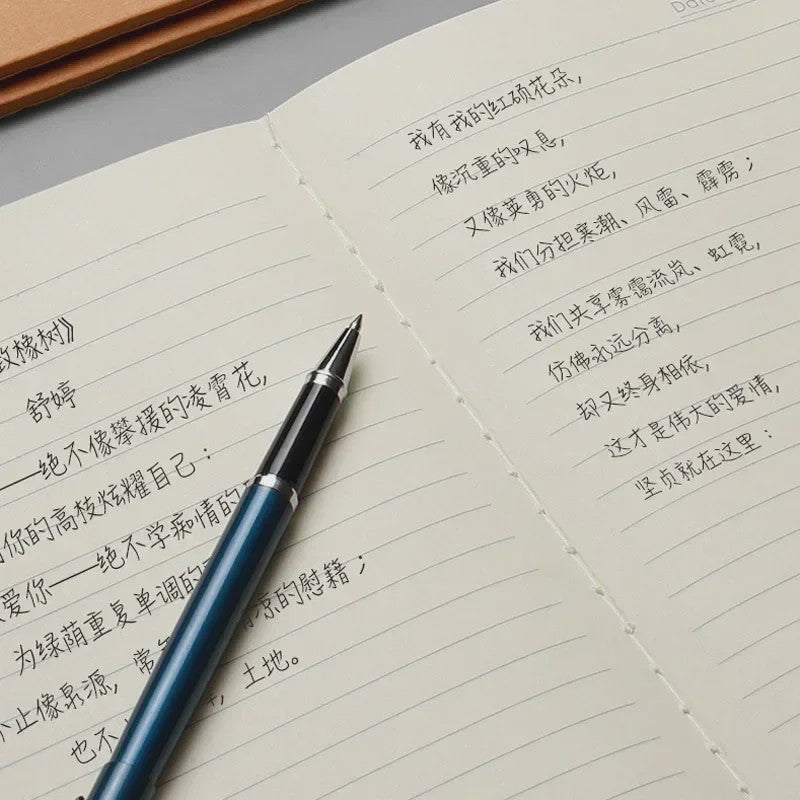 致橡树》
舒婷
——绝不像攀援的凌霄花,
你的高枝炫耀自己:
爱你——绝不学痴情的
为绿荫重复单调的
不止像泉源, 常 凉的慰籍;
也不 土地。
Date
我有我的红硕花朵,
像沉重的叹息,
又像英勇的火炬,
我们分担寒潮、风雷、霹雳;
我们共享雾霭流岚、虹霓,
仿佛永远分离,
却又终身相依,
这才是伟大的爱情,
坚贞就在这里: